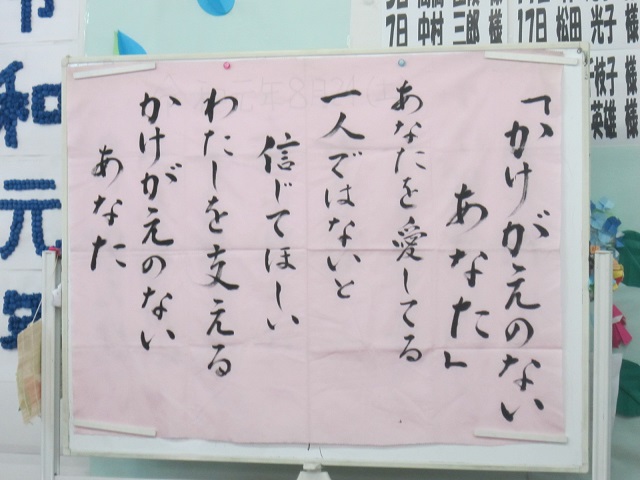 「かけがえのない
あなた」
あなたを愛してる
一人ではないと
信じてほしい
わたしを支える
かけがえのない
あなた
7日 中村 三郎 様
17日 松田 光子 様
枝子 様
英雄 様
和元